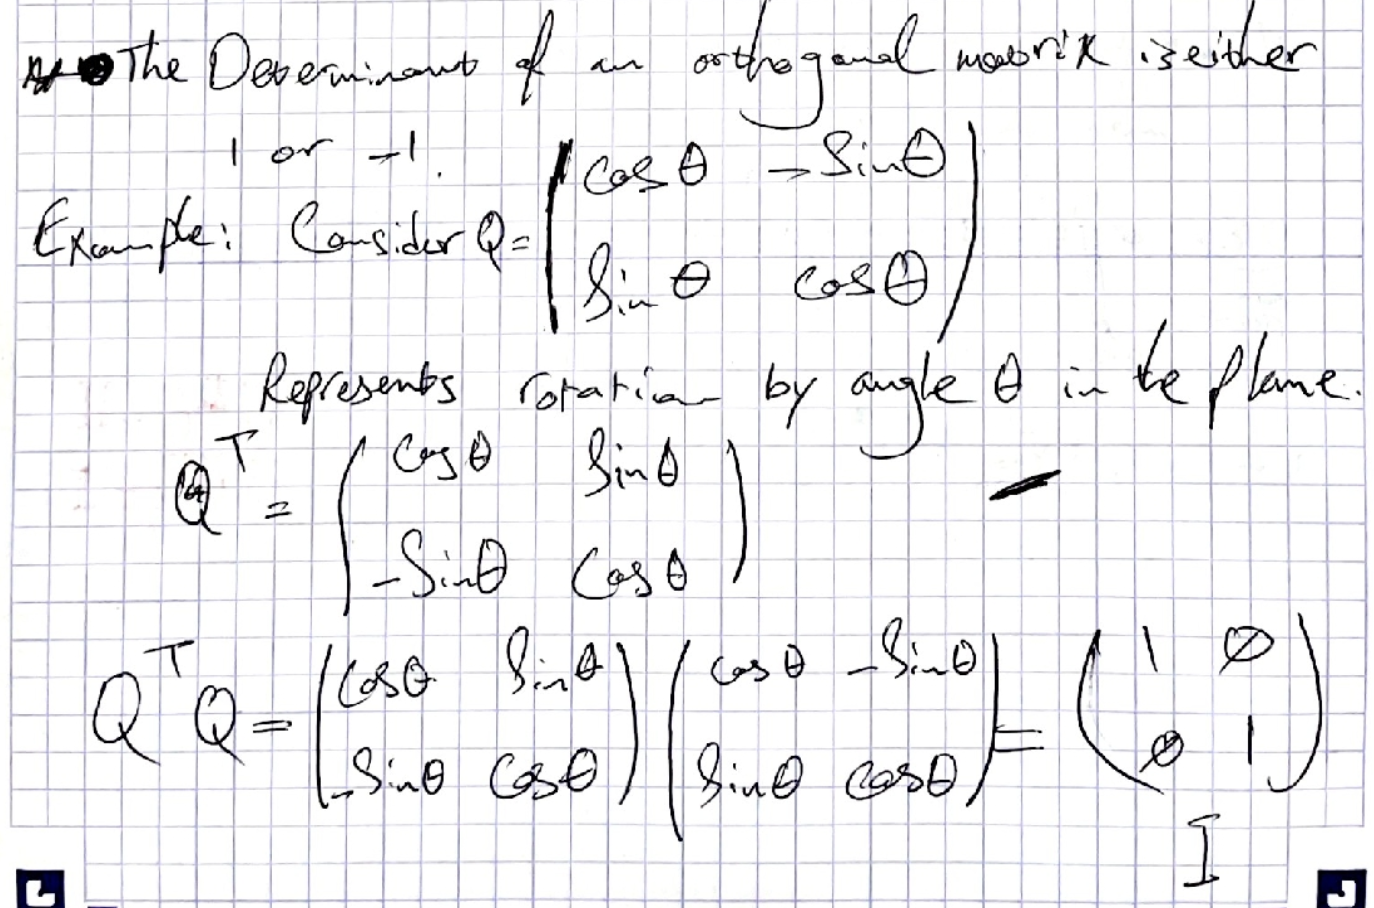 The Determinant of an orthogonal matrix is either
1 or -1.
Example: Consider Q = ( cos θ -Sin θ
Sin θ cos θ )
Represents rotation by angle θ in the plane.
Q^T = ( cos θ Sin θ
-Sin θ Cos θ )
Q^T Q = ( cos θ Sin θ
-Sin θ Cos θ ) ( cos θ -Sin θ
Sin θ cos θ ) = ( 1 0
0 1 )
I